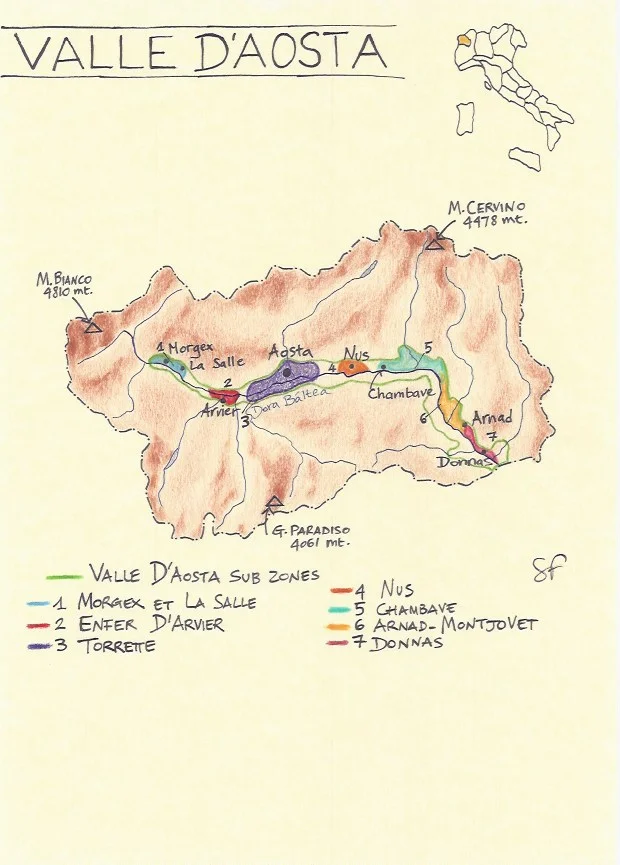 VALLE D'AOSTA
M. CERVINO
4478 mt.
M. BIANCO
4810 mt.
1 Morgex
La Salle
2
Arvier
3
Aosta
Dora Báltea
4
Nus
Chambave
5
6
Arnad
7
Donnas
G. PARADISO
4061 mt.
VALLE D'AOSTA SUB ZONES
1 MORGEX ET LA SALLE
2 ENFER D'ARVIER
3 TORRETTE
4 NUS
5 CHAMBAVE
6 ARNAD-MONTJOVET
7 DONNAS
SF